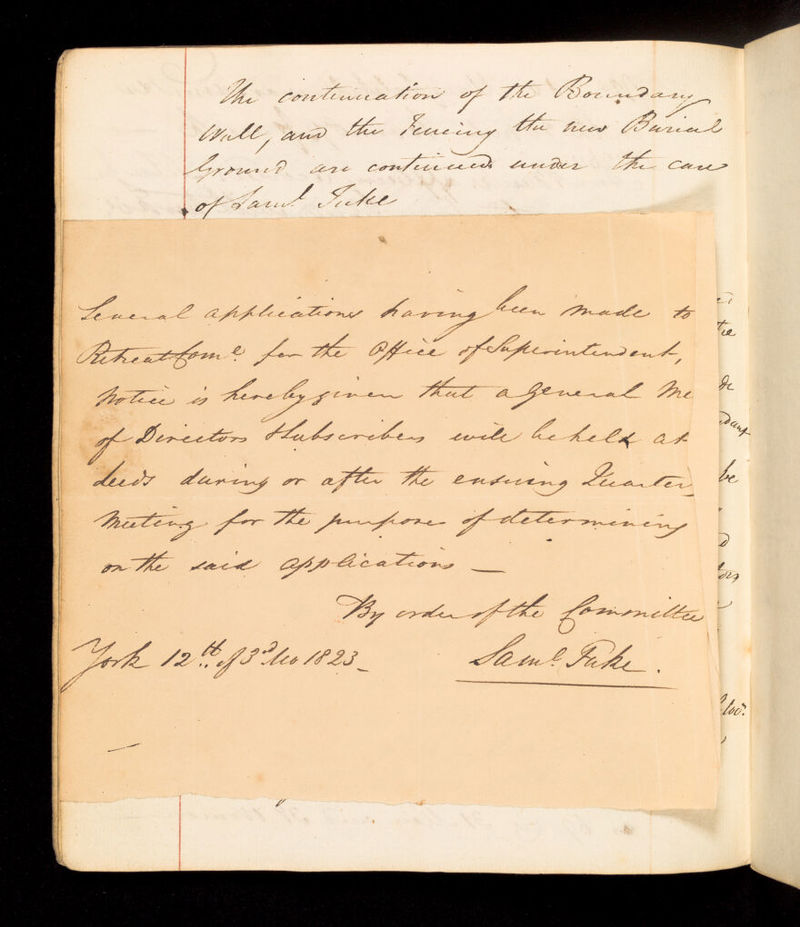 The continuation of the Boundary
Wall, and the Fencing the new Burial
Ground are continued under the care
of Saml. Tuke
Several applications having been made to
Retreat Come. for the Office of Superintendent,
Notice is hereby given that a general Me
of Directors & Subscribers will be held at
Leeds during or after the ensuing Quarter
Meeting for the purpose of determining
on the said applications —
By order of the Committee
York 12th. of 3d. Mo 1823 _
Saml. Tuke.
be